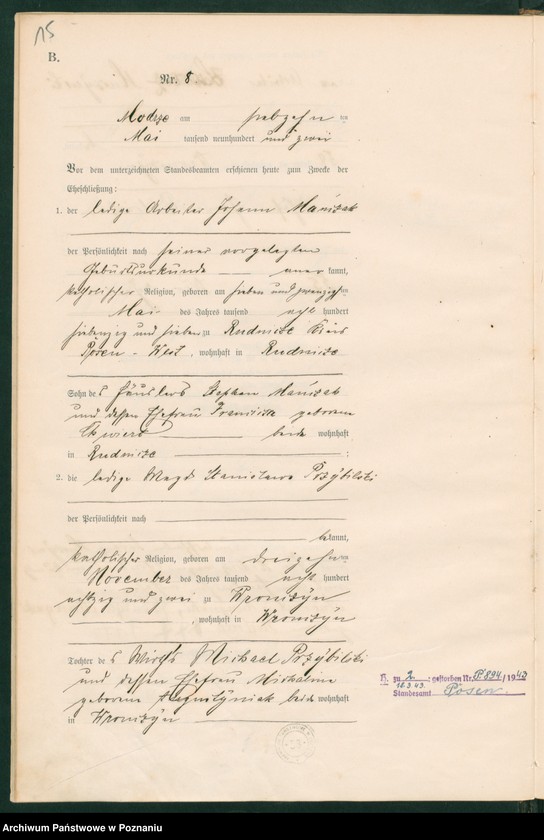 15
B.
Nr. 8
Modrze am siebzehn ten
Mai tausend neunhundert und zwei
Vor dem unterzeichneten Standesbeamten erschienen heute zum Zwecke der
Eheschließung:
1. der ledige Arbeiter Johann
der Persönlichkeit nach seiner vorgelegten
Geburtsurkunde aner kannt,
katholischer Religion, geboren am sieben und zwanzigsten
Mai des Jahres tausend acht hundert
siebenzig und sieben zu Rudnicze Kreis
Posen - West, wohnhaft in Rudnicze
Sohn des Häuslers Stephan
und dessen Ehefrau Franziska geborene
beide wohnhaft
in Rudnicze ;
2. die ledige Magd Stanislawa Przybilski
der Persönlichkeit nach
bekannt,
katholischer Religion, geboren am dreizehnten
November des Jahres tausend acht hundert
achtzig und zwei zu Wronczyn
, wohnhaft in Wronczyn
Tochter des Wirth's Michael Przybilski
und dessen Ehefrau Michalina
geborene beide wohnhaft
in Wronczyn
H. zu 2 : gestorben Nr. P 894/1943
18.3.43. Standesamt Posen.
Archiwum Państwowe w Poznaniu